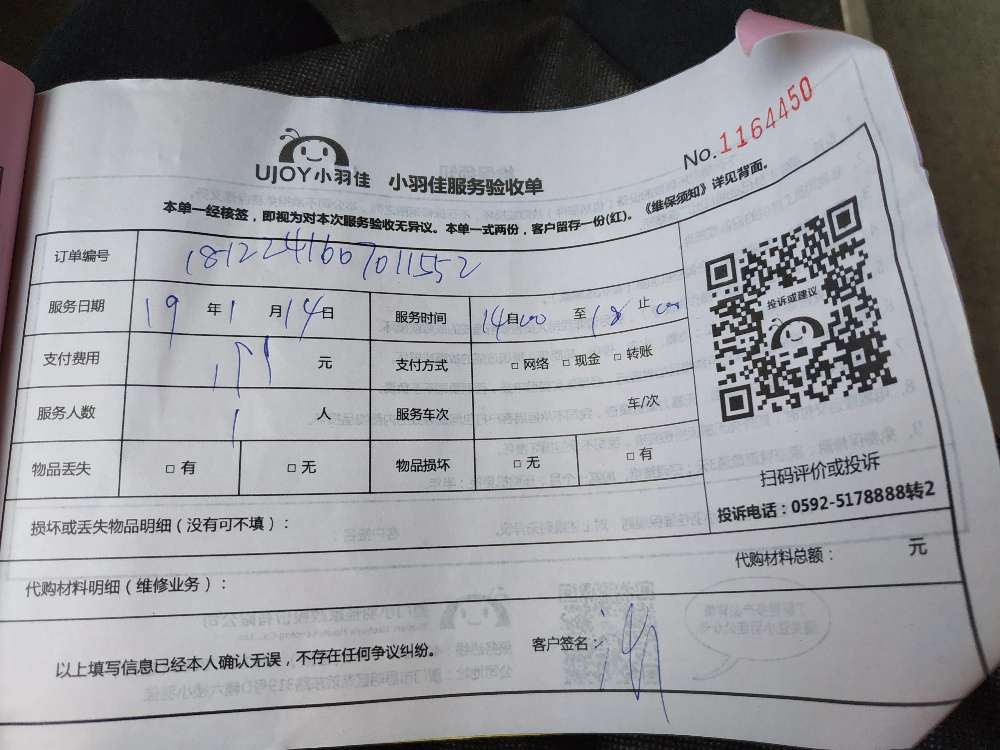 No.1164450
UJOY小羽佳 小羽佳服务验收单
本单一经核签，即视为对本次服务验收无异议。本单一式两份，客户留存一份(红)。《维保须知》详见背面。
订单编号 1812241607011552
服务日期 19 年 1 月 14 日 服务时间 14 自 00 至 18 止 00
支付费用 元 支付方式 □ 网络 □ 现金 □ 转账
服务人数 1 人 服务车次 车/次
物品丢失 □ 有 □ 无 物品损坏 □ 无 □ 有
投诉或建议
扫码评价或投诉
投诉电话：0592-5178888转2
损坏或丢失物品明细（没有可不填）：
代购材料明细（维修业务）： 代购材料总额： 元
以上填写信息已经本人确认无误，不存在任何争议纠纷。 客户签名：